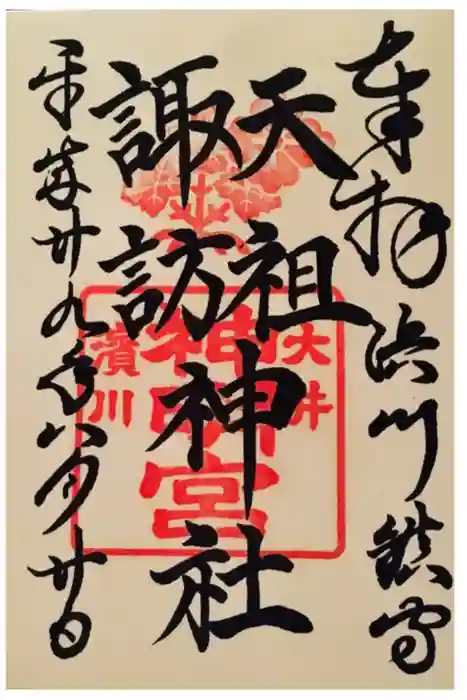 奉拝 浜川鎮守
天祖
諏訪
神社
平成廿九年八月廿日
大井
神明宮
濱川